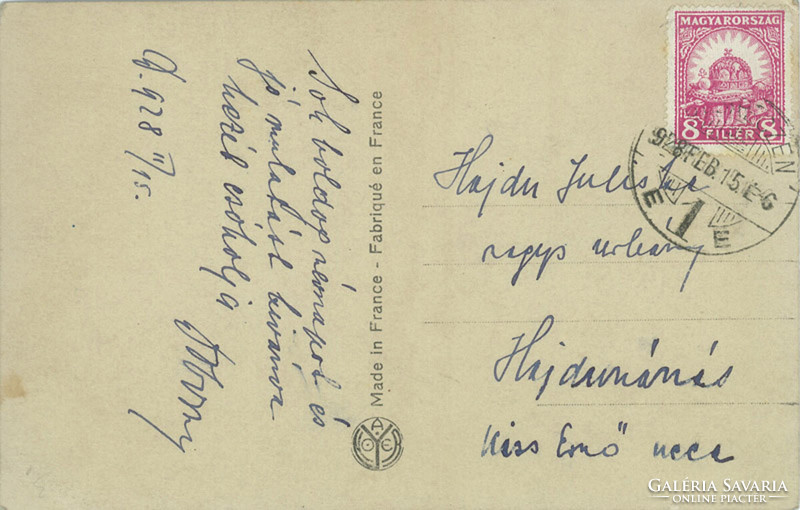 Sok boldog névnapot és
jó mulatást kivánva
kezét csókolja
D. 928 II/15.
Made in France - Fabriqué en France
MAGYARORSZÁG
8 FILLÉR 8
928 FEB. 15. E-G
E 1 E
Hajdu Juliska
nagys urleány
Hajdunánás
Kiss Ernő ucca
GALÉRIA SAVARIA
ONLINE PIACTÉR